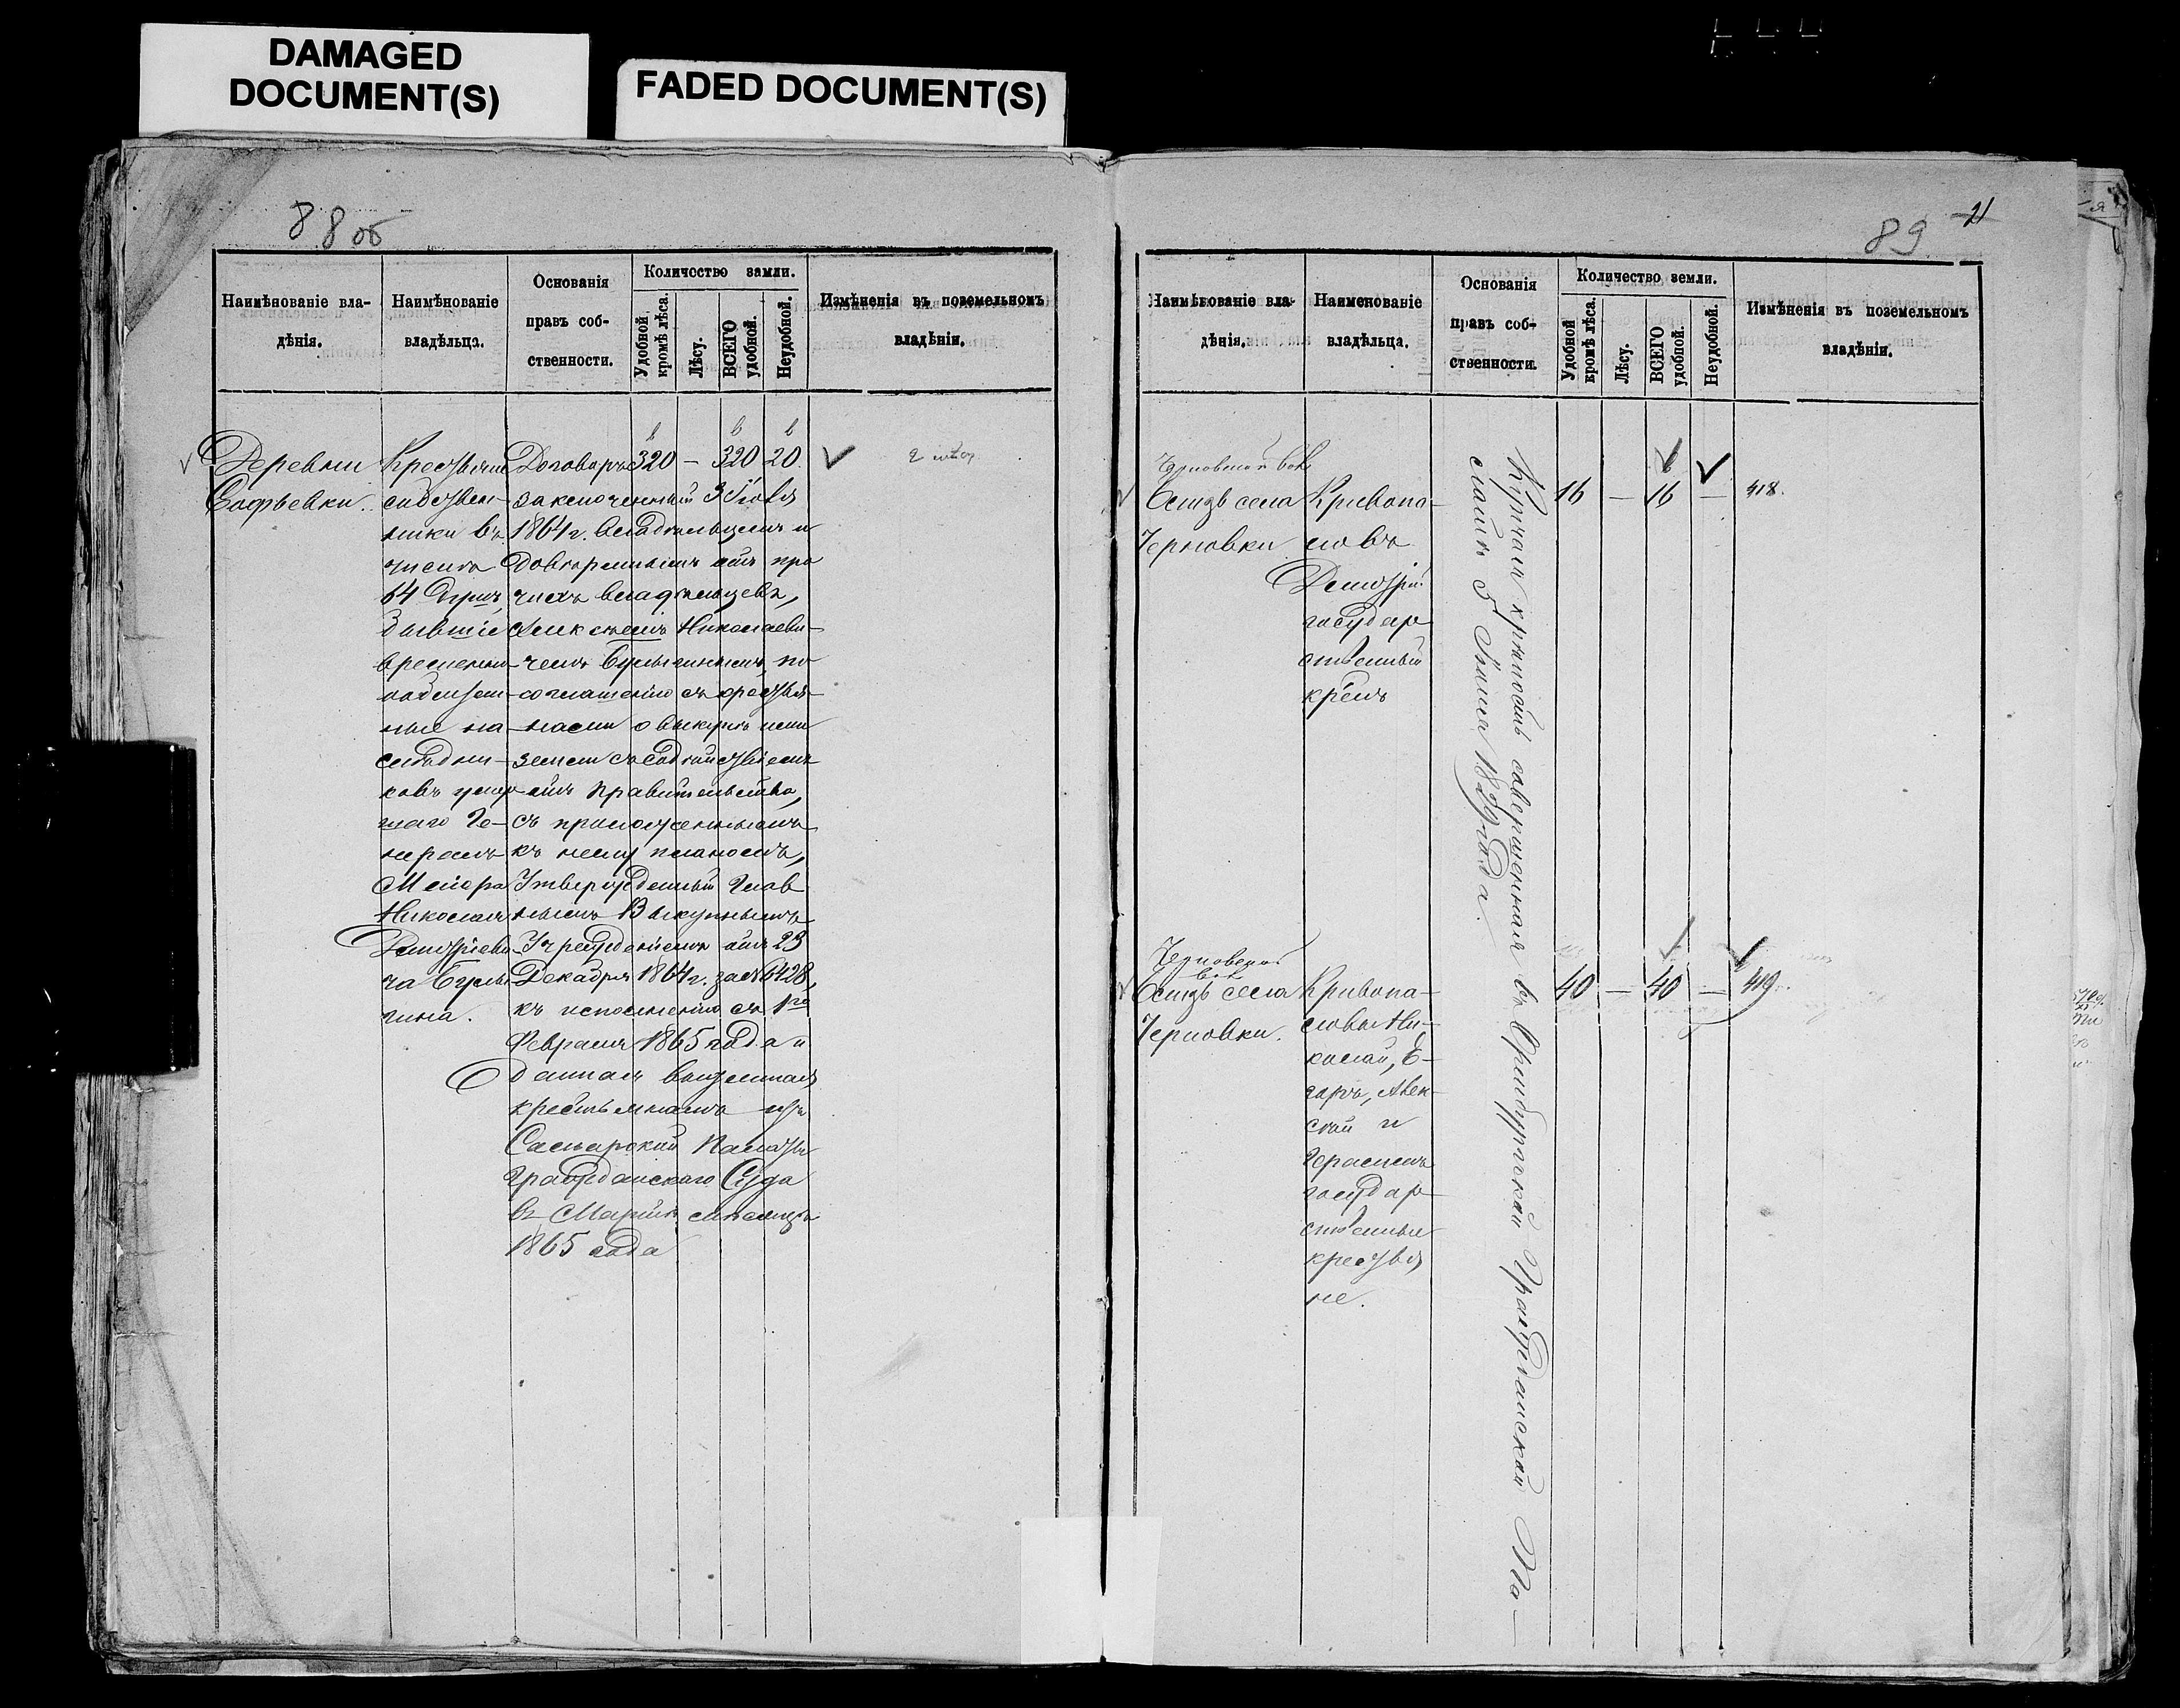 DAMAGED
DOCUMENT(S)
FADED DOCUMENT(S)
88 об
Наимѣнованіе вла-
дѣнія.
Наимѣнованіе
владѣльца.
Основанія
правъ соб-
ственности.
Количество земли.
Удобной
кромѣ лѣса.
Лѣсу.
ВСЕГО
удобной.
Неудобной.
Измѣненія въ поземельномъ
владѣніи.
Деревни
Софьевки.
Крестьяне
собствен-
ники въ
числѣ
64 душъ,
бывшіе
временно-
обязан-
ные на-
слѣдни-
ковъ умер
шаго Ге-
нералъ
Маіора
Николая
Дмитріеви
ча Булы
гина.
Договоръ
заключенный 3 Іюля
1864 г. владѣльцемъ и
довѣреннымъ отъ про
чихъ владѣльцевъ,
Алексѣемъ Николаеви-
чемъ Булыгинымъ, по
соглашенію съ крестья-
нами о выкупѣ ими
земли съ содѣйствіемъ
отъ Правительства,
съ приложеннымъ
къ нему планомъ,
Утвержденный Глав
нымъ Выкупнымъ
Учрежденіемъ отъ 23
Декабря 1864 г. за № 6428,
къ исполненію съ 1го
Февраля 1865 года и
данная выданная
крестьянамъ изъ
Самарской Палаты
Гражданскаго Суда
въ Мартѣ мѣсяцѣ
1865 года
320 — 320 20.
89
21
Наимѣнованіе вла-
дѣнія.
Наименованіе
владѣльца.
Основанія
правъ соб-
ственности.
Количество земли.
Удобной
кромѣ лѣса.
Лѣсу.
ВСЕГО
удобной.
Неудобной.
Измѣненія въ поземельномъ
владѣніи.
Черновской вол
Близъ села
Черновки
Кривопа-
ловъ
Дмитрій
государ
ственный
кре-нъ
16 — 16 — 418.
Купчая крѣпость совершенная въ Оренбургской Гражданской Па-
латѣ 5 Іюня 1829 года.
Черновской
вол
Близъ села
Черновки.
Кривопа-
ловы Ни-
колай, Е-
горъ, Алек-
сѣй и
Герасимъ
государ-
ственные
крестья
не.
40 — 40 — 419.